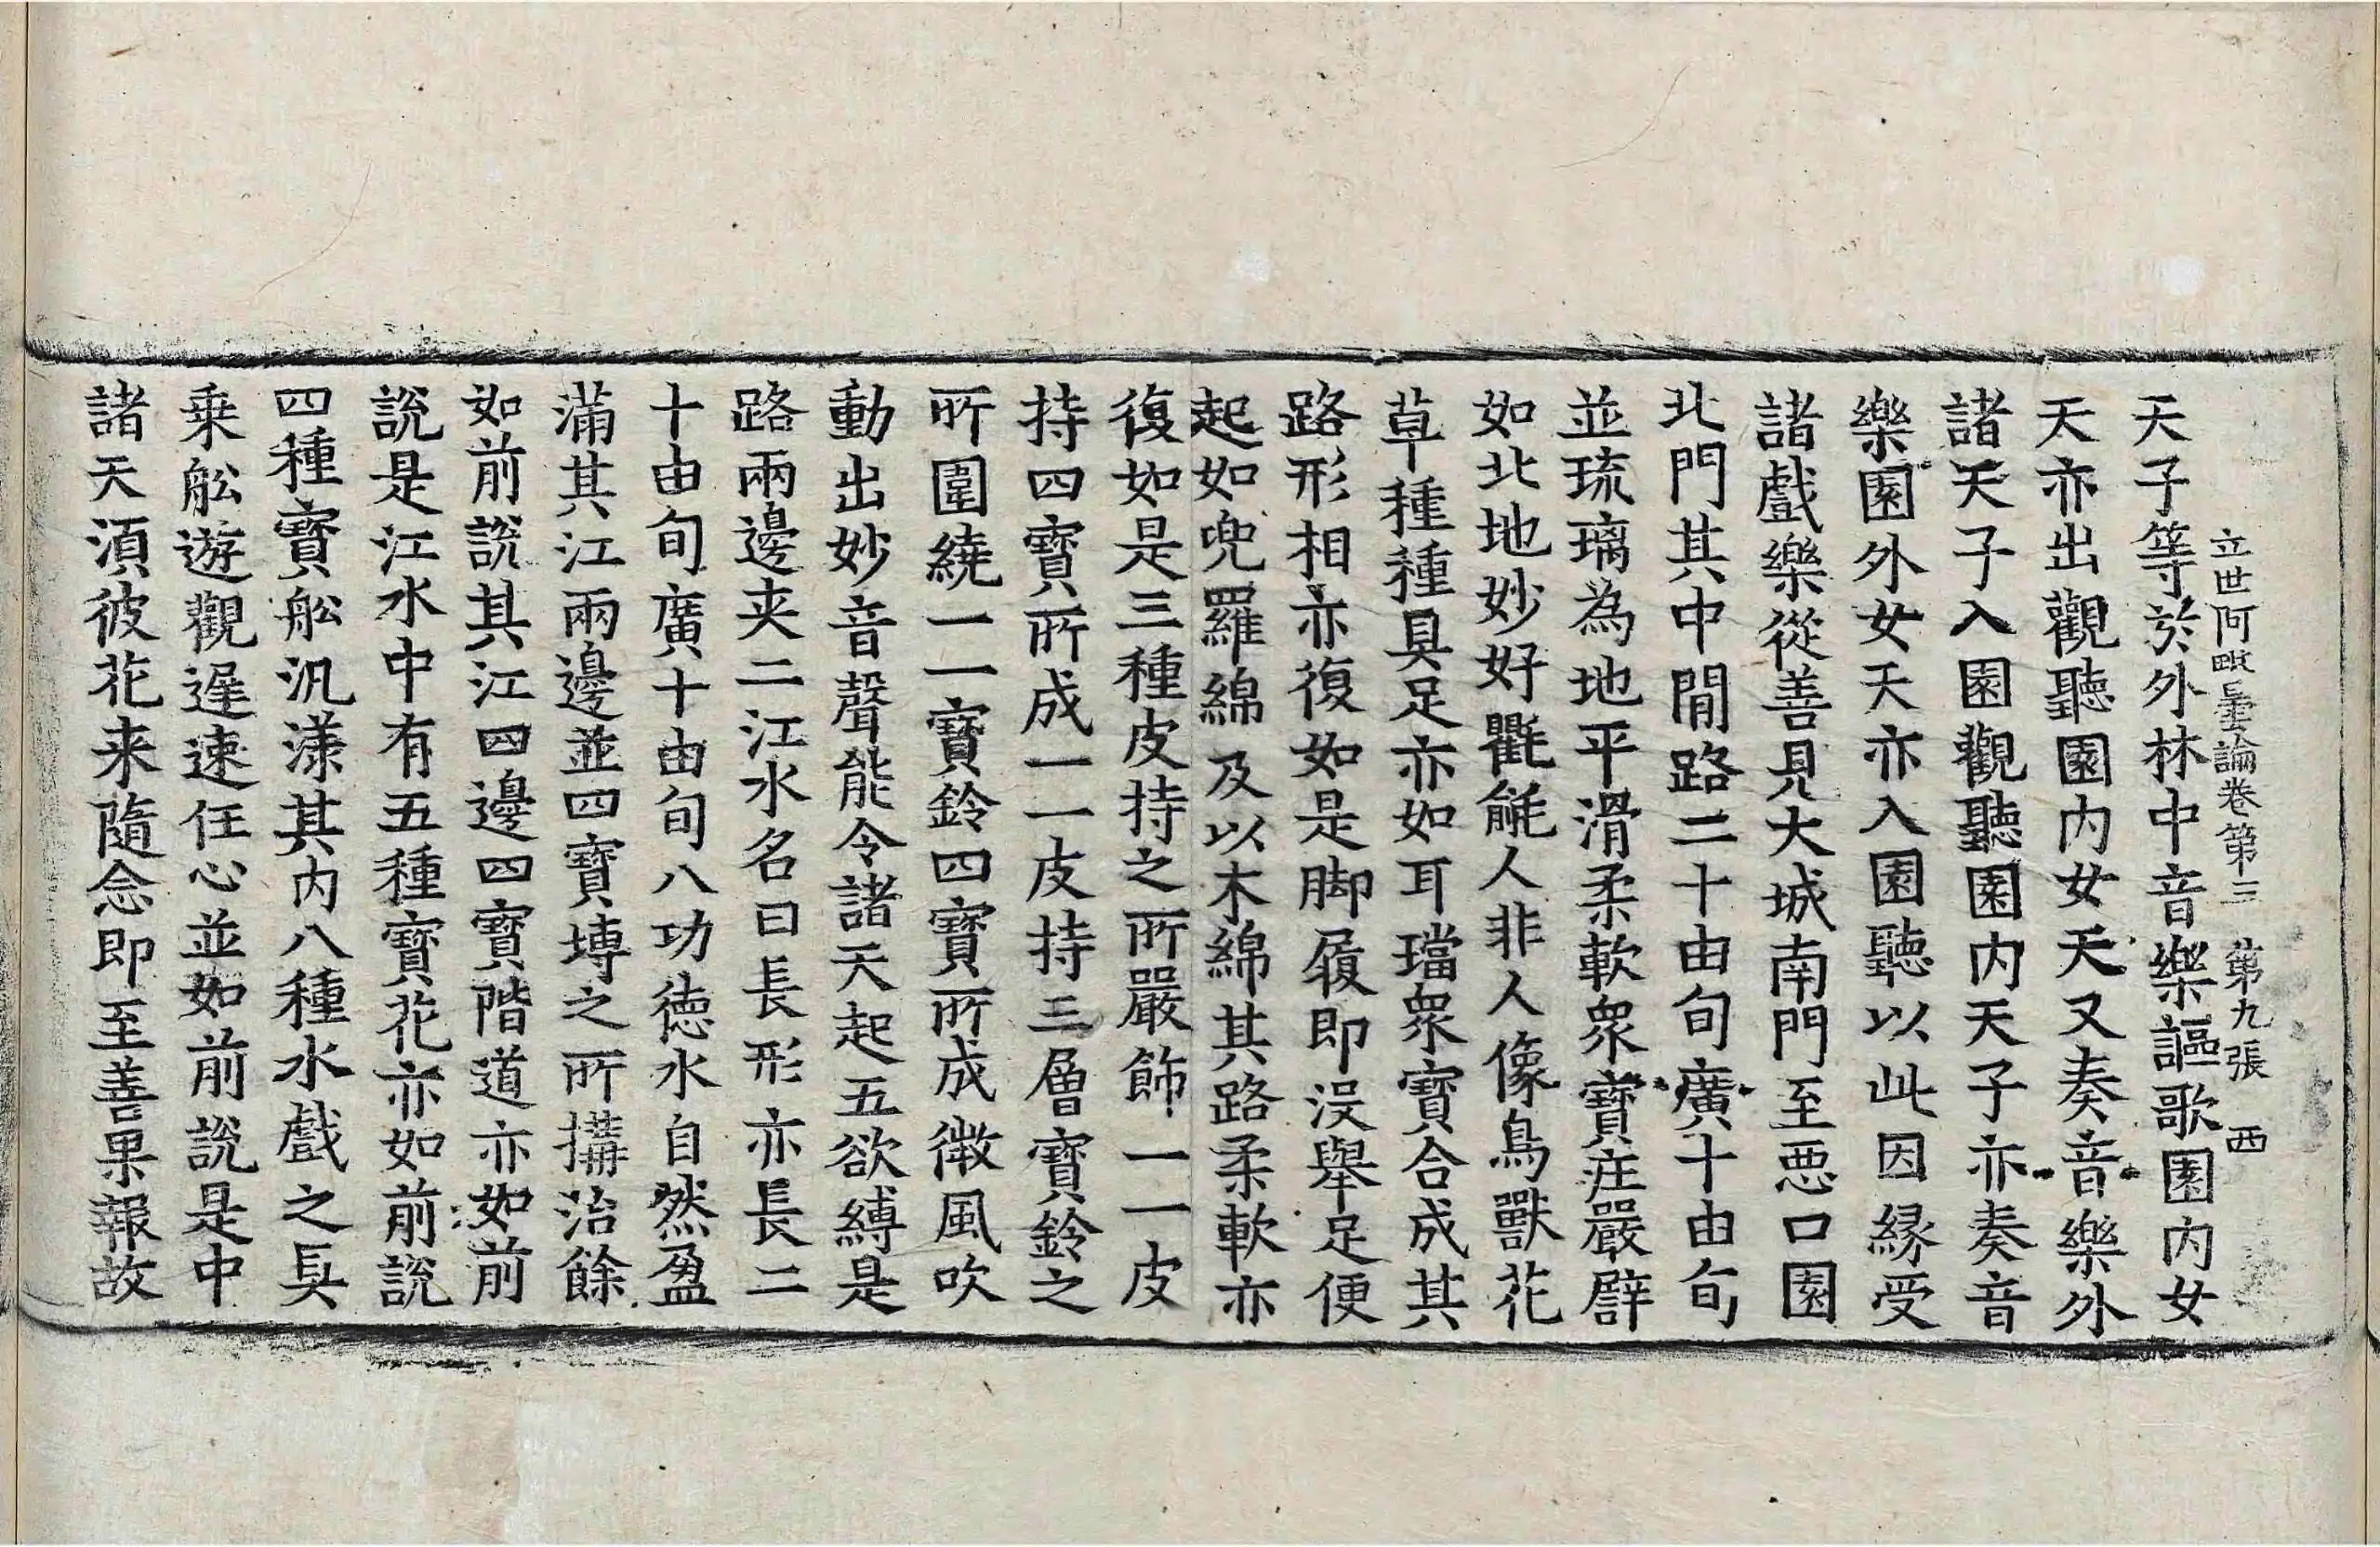 立世阿毗曇論卷第三 第九張 西
天子等於外林中音樂謳歌園內女
天亦出觀聽園內女天又奏音樂外
諸天子入園觀聽園內天子亦奏音
樂園外女天亦入園聽以此因緣受
諸戲樂從善見大城南門至惡口園
北門其中間路二十由旬廣十由旬
並琉璃為地平滑柔軟眾寶莊嚴譬
如北地妙好氍毹人非人像鳥獸花
草種種具足亦如耳璫眾寶合成其
路形相亦復如是脚履即沒舉足便
起如兜羅綿及以木綿其路柔軟亦
復如是三種皮持之所嚴飾一一皮
持四寶所成一一皮持三層寶鈴之
所圍繞一一寶鈴四寶所成微風吹
動出妙音聲能令諸天起五欲縛是
路兩邊夾二江水名曰長形亦長二
十由旬廣十由旬八功德水自然盈
滿其江兩邊並四寶塼之所搆治餘
如前說其江四邊四寶階道亦如前
說是江水中有五種寶花亦如前說
四種寶舩汎漾其內八種水戲之具
乗舩遊觀遲速任心並如前說是中
諸天湏彼花来隨念即至善果報故